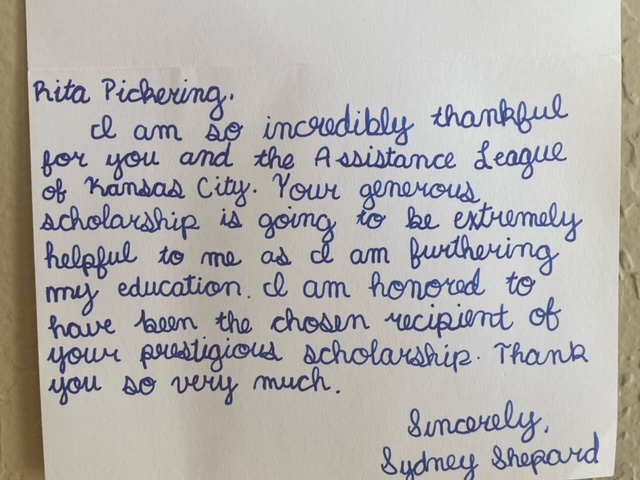 Rita Pickering,
I am so incredibly thankful
for you and the Assistance League
of Kansas City. Your generous
scholarship is going to be extremely
helpful to me as I am furthering
my education. I am honored to
have been the chosen recipient of
your prestigious scholarship. Thank
you so very much.
Sincerely,
Sydney Shepard